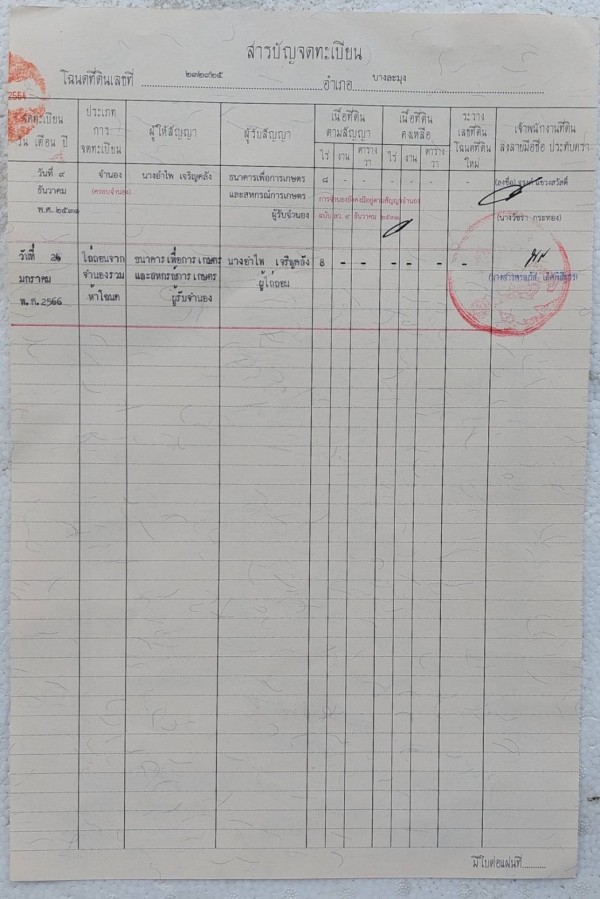 สารบัญจดทะเบียน
โฉนดที่ดินเลขที่ ๒๓๒๙๒๕ อำเภอ บางละมุง
จดทะเบียน วัน เดือน ปี
ประเภทการจดทะเบียน
ผู้ให้สัญญา
ผู้รับสัญญา
เนื้อที่ดินตามสัญญา
ไร่ งาน ตารางวา
เนื้อที่ดินคงเหลือ
ไร่ งาน ตารางวา
ระวาง เลขที่ดิน โฉนดที่ดินใหม่
เจ้าพนักงานที่ดิน ลงลายมือชื่อ ประทับตรา
วันที่ ๙ จำนอง นางอำไพ เจริญคลัง ธนาคารเพื่อการเกษตร ๘ - - - - - - (ลงชื่อ)
ธันวาคม (ครอบจำนอง) และสหกรณ์การเกษตร การจำนองยังคงมีอยู่ตามสัญญาจำนอง
พ.ศ. ๒๕๓๑ ผู้รับจำนอง ฉบับ ลว. ๙ ธันวาคม ๒๕๓๑ (นางวัชรา กระทอง)
วันที่ 26 ไถ่ถอนจาก ธนาคารเพื่อการเกษตร นางอำไพ เจริญคลัง 8 - - - - - -
มกราคม จำนองรวม และสหกรณ์การเกษตร ผู้ไถ่ถอน
พ.ศ. 2566 ห้าโฉนด ผู้รับจำนอง
มีใบต่อแผ่นที่